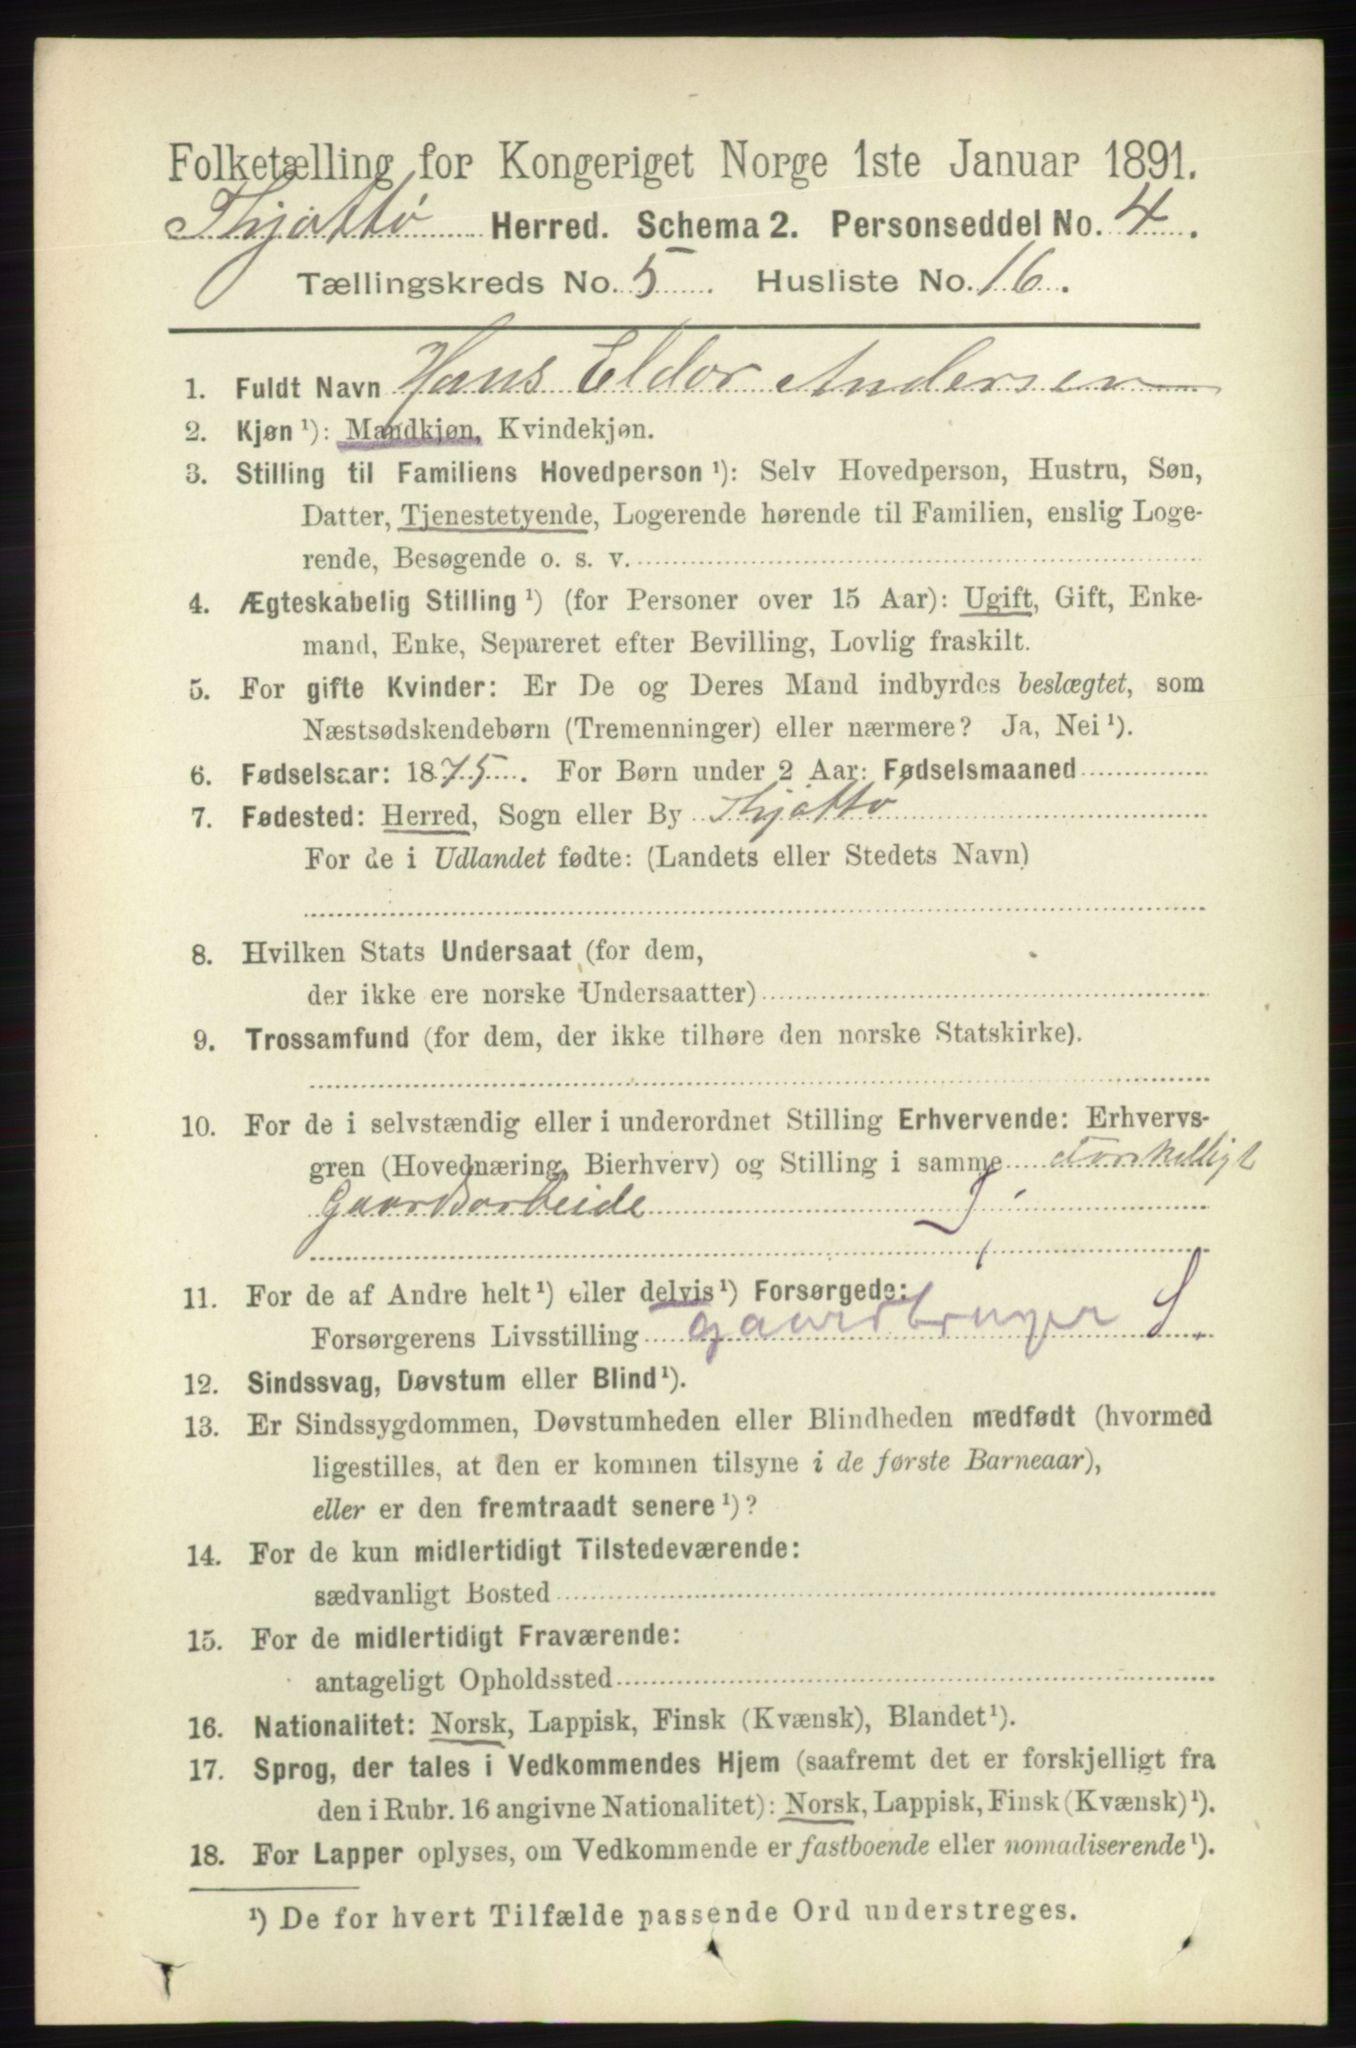 Folketælling for Kongeriget Norge 1ste Januar 1891.
Thjøttø Herred. Schema 2. Personseddel No. 4.
Tællingskreds No. 5. Husliste No. 16.
1. Fuldt Navn Hans Eldor Andersen
2. Kjøn¹): Mandkjøn, Kvindekjøn.
3. Stilling til Familiens Hovedperson¹): Selv Hovedperson, Hustru, Søn,
Datter, Tjenestetyende, Logerende hørende til Familien, enslig Loge-
rende, Besøgende o. s. v.
4. Ægteskabelig Stilling¹) (for Personer over 15 Aar): Ugift, Gift, Enke-
mand, Enke, Separeret efter Bevilling, Lovlig fraskilt.
5. For gifte Kvinder: Er De og Deres Mand indbyrdes beslægtet, som
Næstsødskendebørn (Tremenninger) eller nærmere? Ja, Nei¹).
6. Fødselsaar: 1875. For Børn under 2 Aar: Fødselsmaaned
7. Fødested: Herred, Sogn eller By Thjøttø
For de i Udlandet fødte: (Landets eller Stedets Navn)
8. Hvilken Stats Undersaat (for dem,
der ikke ere norske Undersaatter)
9. Trossamfund (for dem, der ikke tilhøre den norske Statskirke).
10. For de i selvstændig eller i underordnet Stilling Erhvervende: Erhvervs-
gren (Hovednæring, Bierhverv) og Stilling i samme Forskelligt
Gaardsarbeide
11. For de af Andre helt¹) eller delvis¹) Forsørgede:
Forsørgerens Livsstilling gaardbruger S.
12. Sindssvag, Døvstum eller Blind¹).
13. Er Sindssygdommen, Døvstumheden eller Blindheden medfødt (hvormed
ligestilles, at den er kommen tilsyne i de første Barneaar),
eller er den fremtraadt senere¹)?
14. For de kun midlertidigt Tilstedeværende:
sædvanligt Bosted
15. For de midlertidigt Fraværende:
antageligt Opholdssted
16. Nationalitet: Norsk, Lappisk, Finsk (Kvænsk), Blandet¹).
17. Sprog, der tales i Vedkommendes Hjem (saafremt det er forskjelligt fra
den i Rubr. 16 angivne Nationalitet): Norsk, Lappisk, Finsk (Kvænsk)¹).
18. For Lapper oplyses, om Vedkommende er fastboende eller nomadiserende¹).
¹) De for hvert Tilfælde passende Ord understreges.